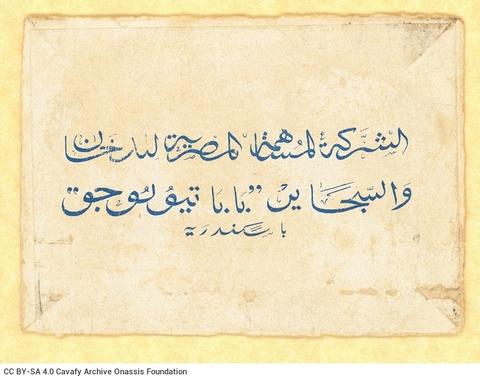 الشركة المساهمة المصرية للدخان
والسجاير "بابا تيولوجو"
باسكندرية
CC BY-SA 4.0 Cavafy Archive Onassis Foundation